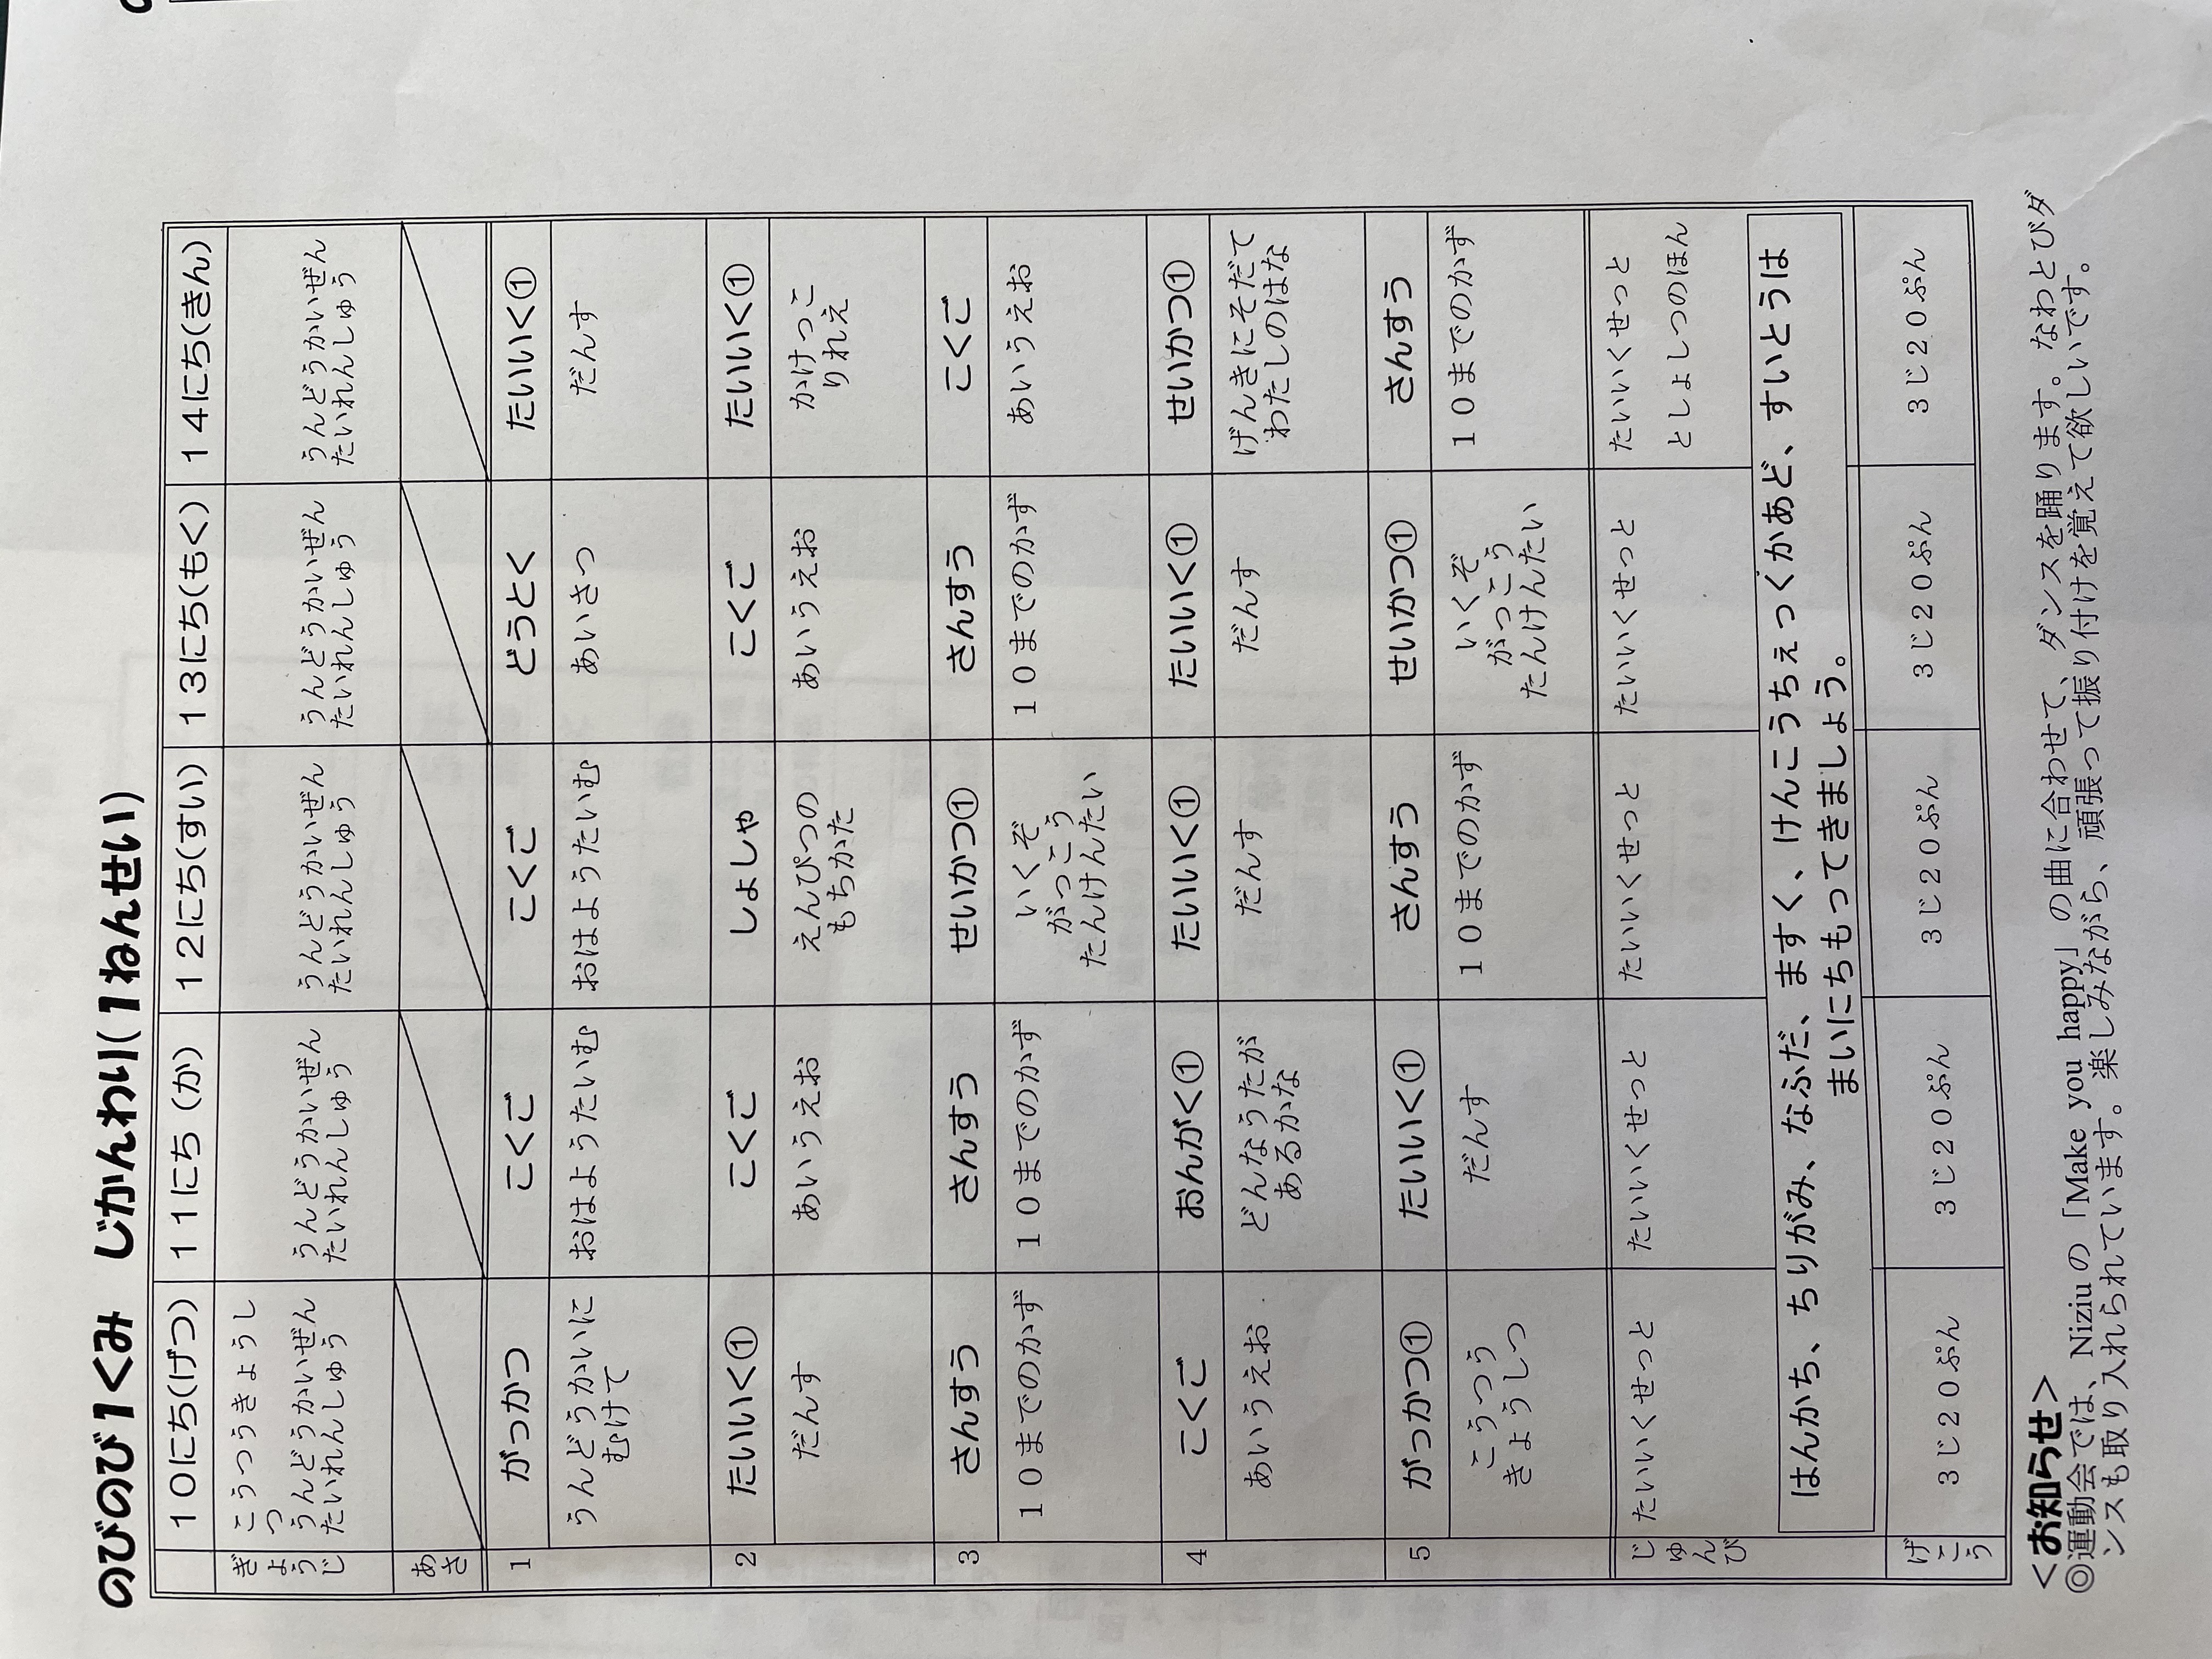 のびのび１くみ　じかんわり(１ねんせい)
１０にち(げつ)　１１にち (か)　１２にち(すい)　１３にち(もく)　１４にち(きん)
ぎょうじ
こうつうきょうしつ
うんどうかいぜん
たいれんしゅう
うんどうかいぜん
たいれんしゅう
うんどうかいぜん
たいれんしゅう
うんどうかいぜん
たいれんしゅう
うんどうかいぜん
たいれんしゅう
あさ
１　がっかつ　こくご　こくご　どうとく　たいいく①
うんどうかいに
むけて
おはようたいむ
おはようたいむ
あいさつ
だんす
２　たいいく①　こくご　しょしゃ　こくご　たいいく①
だんす
あいうえお
えんぴつの
もちかた
あいうえお
かけっこ
りれえ
３　さんすう　さんすう　せいかつ①　さんすう　こくご
１０までのかず
１０までのかず
いくぞ
がっこう
たんけんたい
１０までのかず
あいうえお
４　こくご　おんがく①　たいいく①　たいいく①　せいかつ①
あいうえお
どんなうたが
あるかな
だんす
だんす
げんきにそだて
わたしのはな
５　がっかつ①　たいいく①　さんすう　せいかつ①　さんすう
こうつう
きょうしつ
だんす
１０までのかず
いくぞ
がっこう
たんけんたい
１０までのかず
じゅんび
たいいくせっと　たいいくせっと　たいいくせっと　たいいくせっと　たいいくせっと
としょしつのほん
はんかち、ちりがみ、なふだ、ますく、けんこうちぇっくかあど、すいとうは
まいにちもってきましょう。
げこう
３じ２０ぷん　３じ２０ぷん　３じ２０ぷん　３じ２０ぷん　３じ２０ぷん
＜お知らせ＞
◎運動会では、Niziuの「Make you happy」の曲に合わせて、ダンスを踊ります。なわとびダ
ンスも取り入れられています。楽しみながら、頑張って振り付けを覚えて欲しいです。